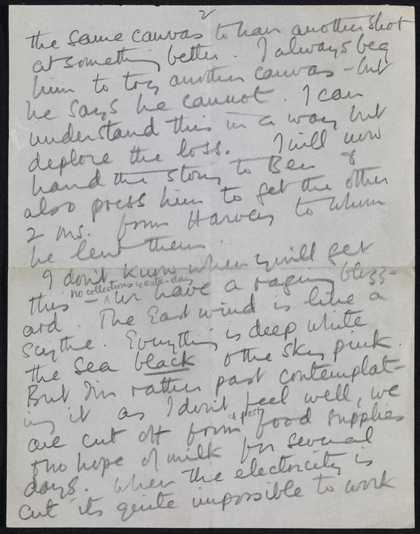 2
the same canvas to have another shot
at something better. I always beg
him to try another canvas - but
he says he cannot. I can
understand this in a way but
deplore the loss. I will now
hand the story to Ben &
also press him to get the other
2 ms. from Harvey to whom
he lent them.
I don't know when you'll get
this - no collections yesterday
We have a raging blizz-
ard. The East wind is like a
Scythe. Everything is deep white
the sea black & the sky pink.
But I'm rather past contemplat-
ing it as I don't feel well, we
are cut off from & post food supplies
& no hope of milk for several
days. When the electricity is
cut its quite impossible to work